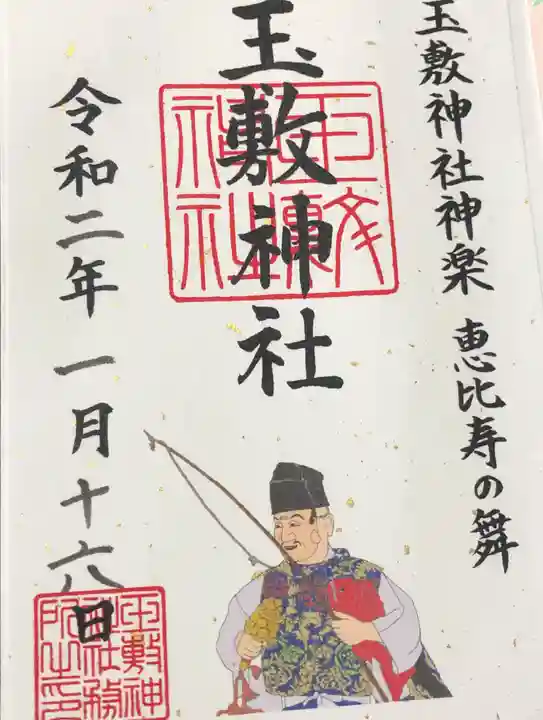 玉敷神社神楽 恵比寿の舞
玉敷神社
令和二年 一月十六日
玉敷神社
玉敷神社務所之印